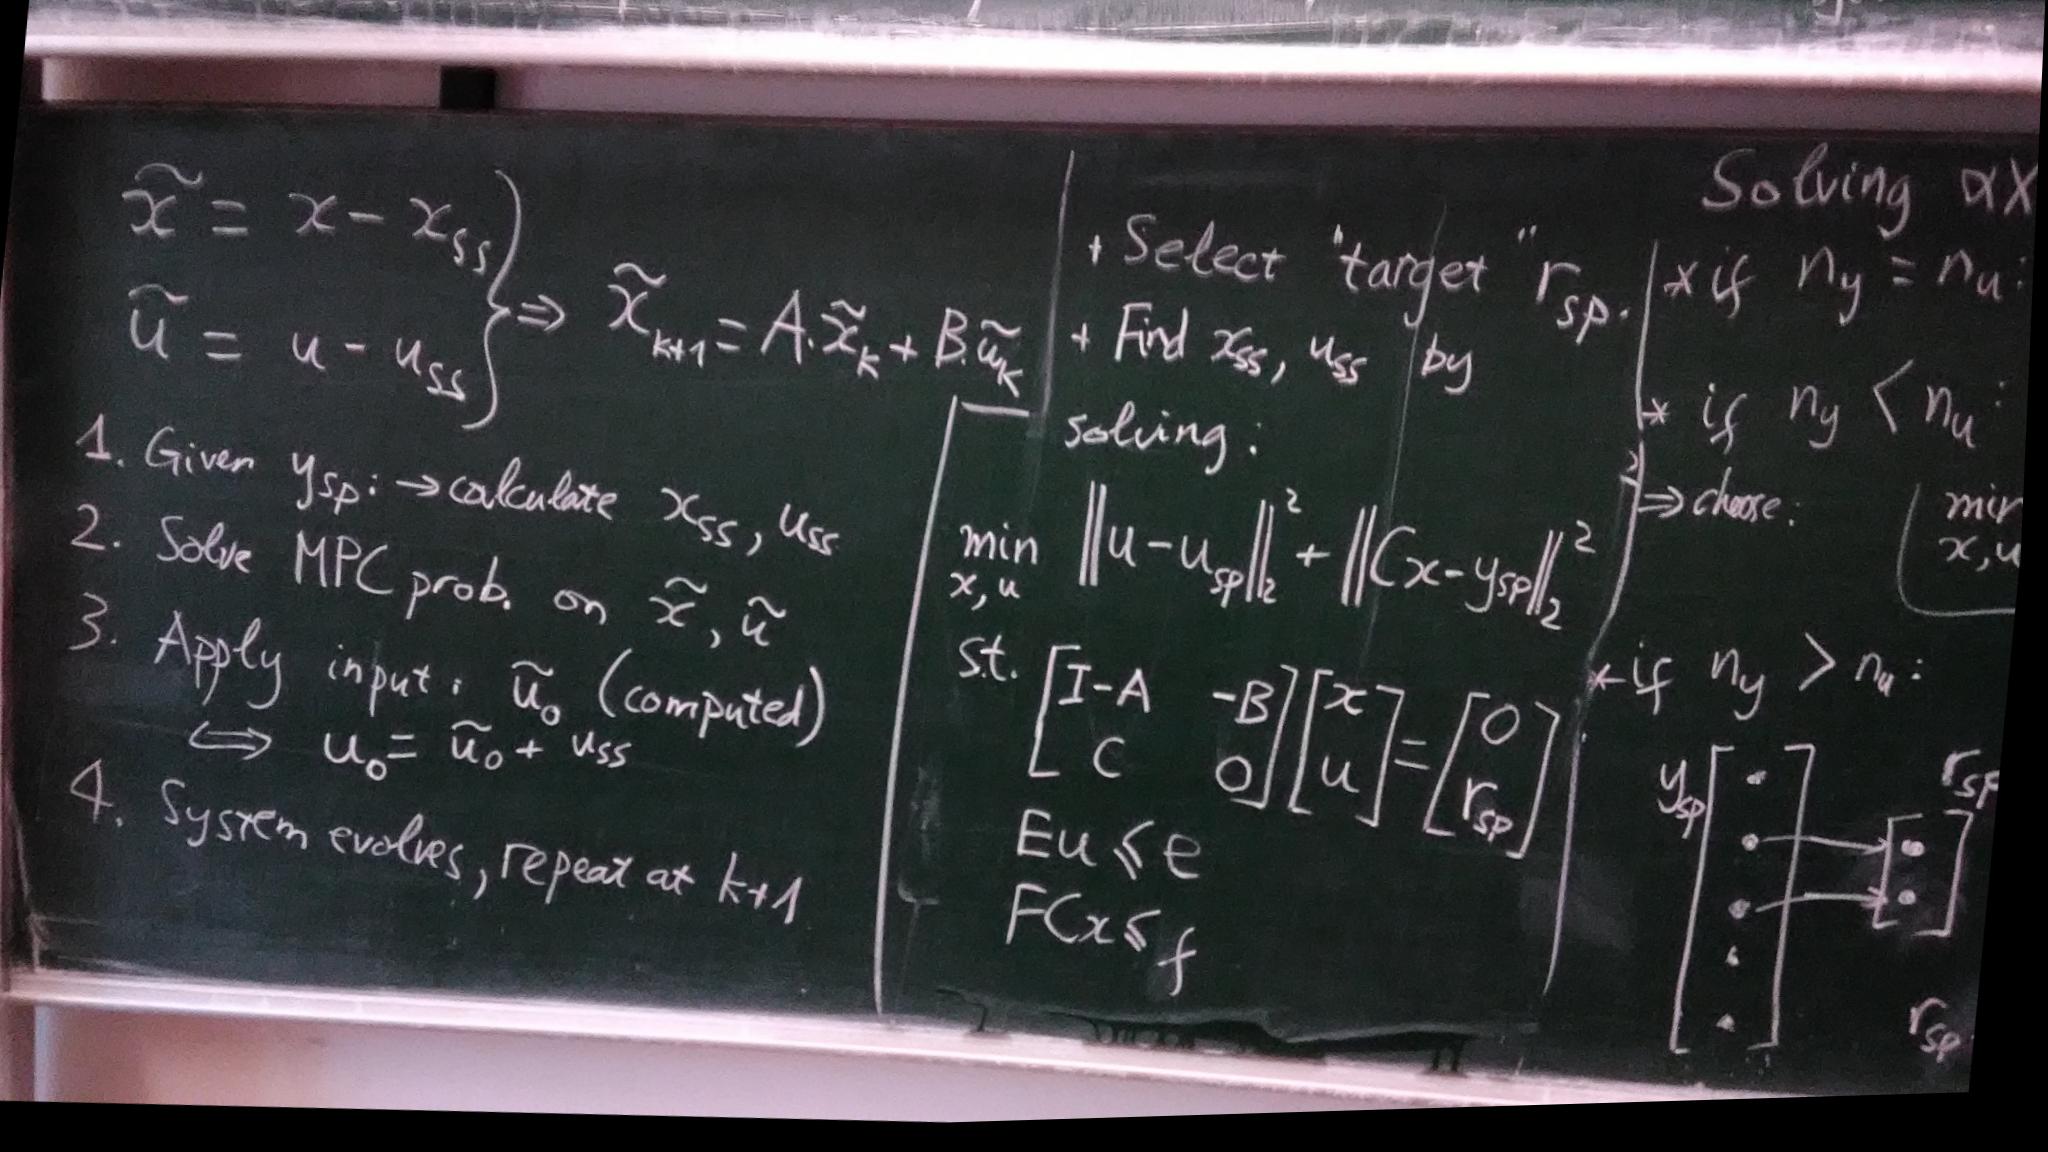 x̃ = x - x_ss
ũ = u - u_ss
} ⇒ x̃_k+1 = A.x̃_k + B.ũ_k
1. Given y_sp: → calculate x_ss, u_ss
2. Solve MPC prob. on x̃, ũ
3. Apply input: ũ_0 (computed)
⇔ u_0 = ũ_0 + u_ss
4. System evolves, repeat at k+1
+ Select "target" r_sp.
+ Find x_ss, u_ss by
solving:
min ||u - u_sp||_2^2 + ||Cx - y_sp||_2^2
x, u
s.t. [I-A -B; C 0] [x; u] = [0; r_sp]
Eu ≤ e
FCx ≤ f
Solving
* if n_y = n_u:
* if n_y < n_u:
⇒ choose: min
x, u
* if n_y > n_u:
y_sp r_sp
r_sp